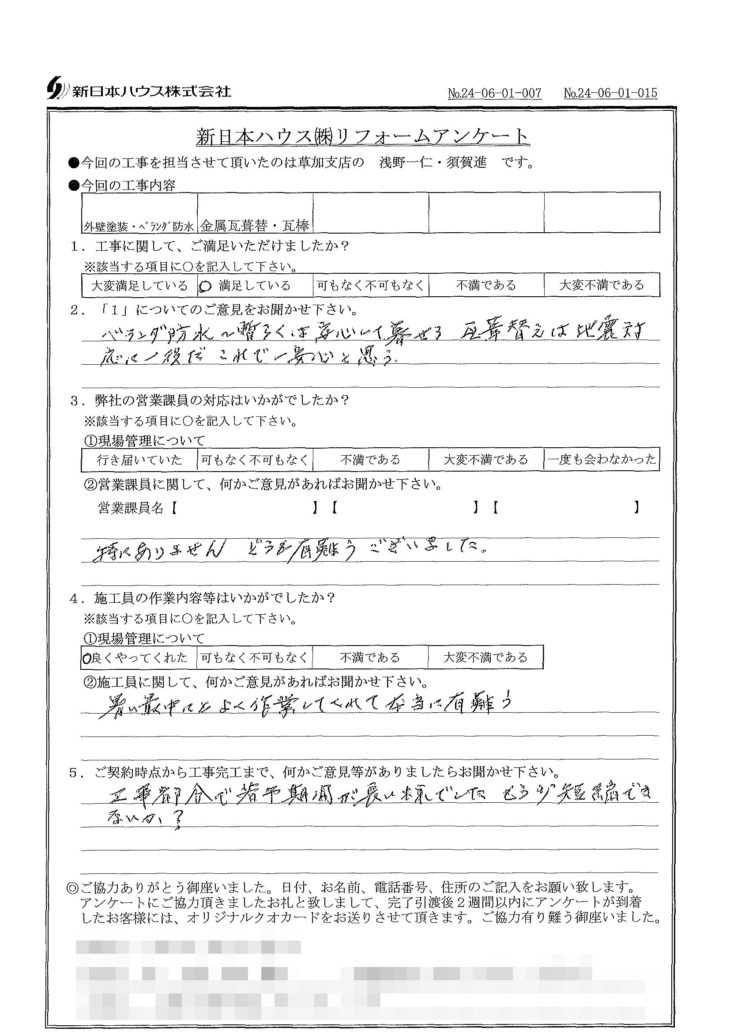 新日本ハウス株式会社 №24-06-01-007 №24-06-01-015
新日本ハウス㈱リフォームアンケート
●今回の工事を担当させて頂いたのは草加支店の 浅野一仁・須賀進 です。
●今回の工事内容
外壁塗装・ベランダ防水 金属瓦葺替・瓦棒
1．工事に関して、ご満足いただけましたか？
※該当する項目に○を記入して下さい。
大変満足している ○ 満足している 可もなく不可もなく 不満である 大変不満である
2．「1」についてのご意見をお聞かせ下さい。
ベランダ防水 暫らくは安心して暮せる 瓦葺替えは地震対
応に一役だ これで一安心と思う．
3．弊社の営業課員の対応はいかがでしたか？
※該当する項目に○を記入して下さい。
①現場管理について
行き届いていた 可もなく不可もなく 不満である 大変不満である 一度も会わなかった
②営業課員に関して、何かご意見があればお聞かせ下さい。
営業課員名【 】【 】【 】
特にありません どうも有難うございました。
4．施工員の作業内容等はいかがでしたか？
※該当する項目に○を記入して下さい。
①現場管理について
○良くやってくれた 可もなく不可もなく 不満である 大変不満である
②施工員に関して、何かご意見があればお聞かせ下さい。
暑い最中によく作業してくれて本当に有難う
5．ご契約時点から工事完工まで、何かご意見等がありましたらお聞かせ下さい。
工事都合で若干期間が長い様でした もう少短縮でき
ないか？
◎ご協力ありがとう御座いました。日付、お名前、電話番号、住所のご記入をお願い致します。
アンケートにご協力頂きましたお礼と致しまして、完了引渡後２週間以内にアンケートが到着
したお客様には、オリジナルクオカードをお送りさせて頂きます。ご協力有り難う御座いました。